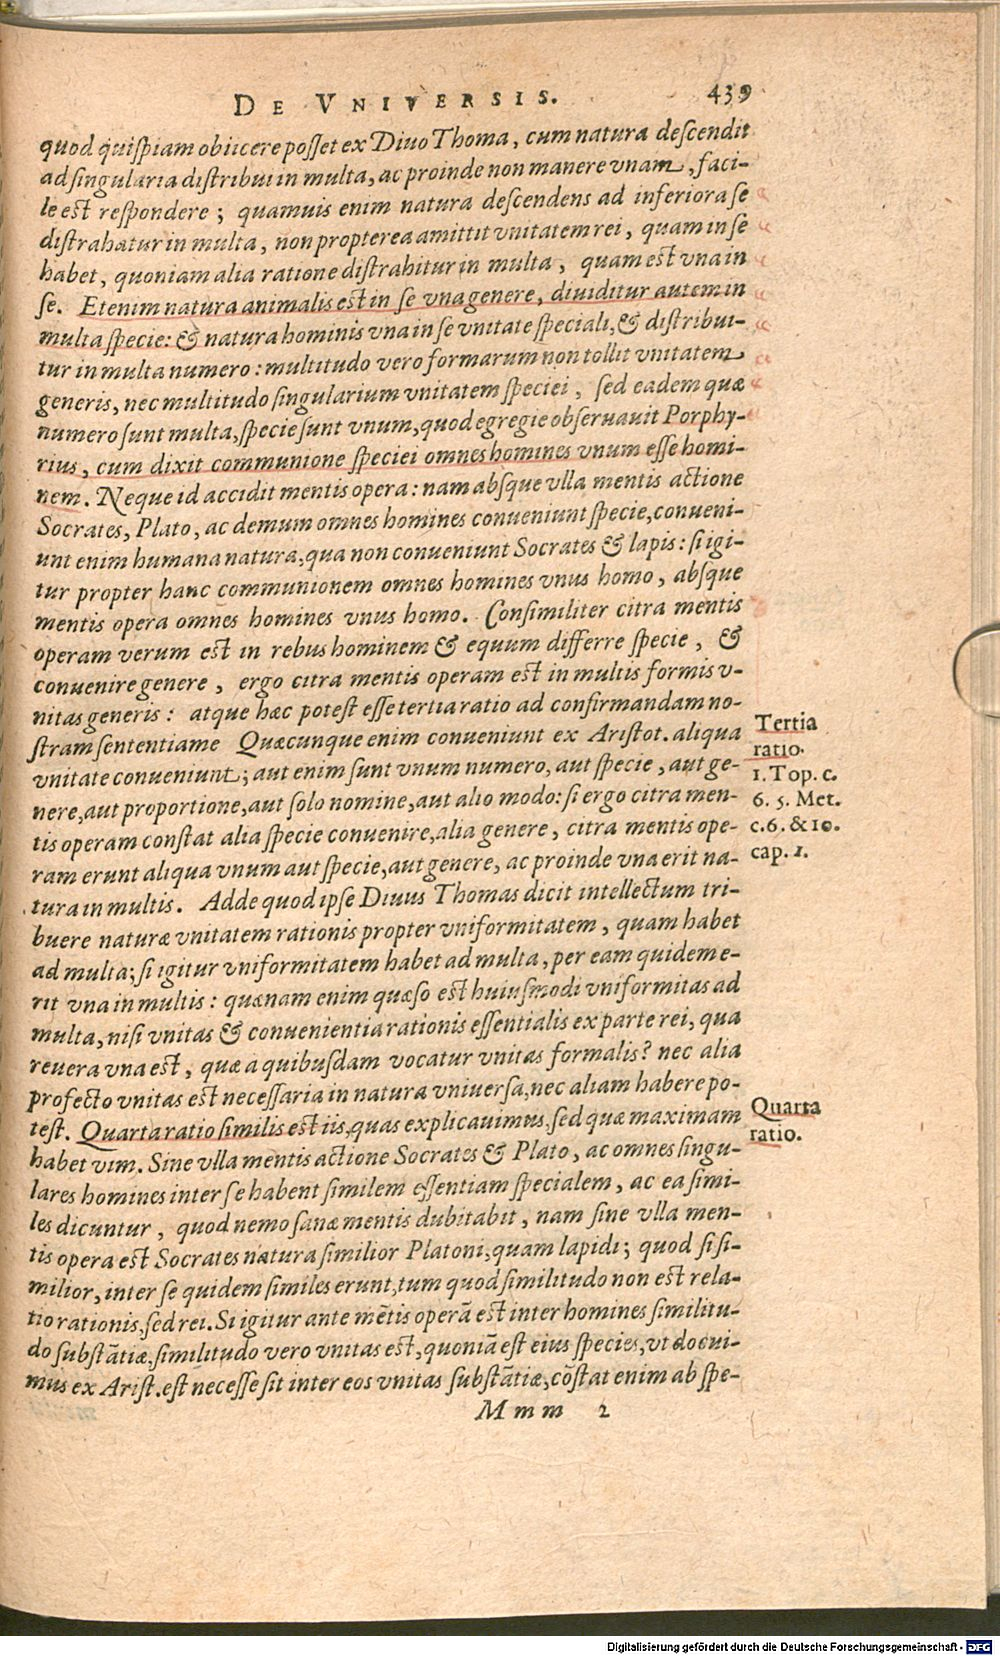 DE VNIVERSIS. 439
quod quispiam obiicere posset ex Diuo Thoma, cum natura descendit
ad singularia distribui in multa, ac proinde non manere vnam, faci-
le est respondere; quamuis enim natura descendens ad inferiora se
distrahatur in multa, non propterea amittit vnitatem rei, quam in se
habet, quoniam alia ratione distrahitur in multa, quam est vna in
se. Etenim natura animalis est in se vna genere, diuiditur autem in
multa specie: & natura hominis vna in se vnitate speciali, & distribui-
tur in multa numero: multitudo vero formarum non tollit vnitatem
generis, nec multitudo singularium vnitatem speciei, sed eadem quæ
numero sunt multa, specie sunt vnum, quod egregie obseruauit Porphy-
rius, cum dixit communione speciei omnes homines vnum esse homi-
nem. Neque id accidit mentis opera: nam absque vlla mentis actione
Socrates, Plato, ac demum omnes homines conueniunt specie, conueni-
unt enim humana natura, qua non conueniunt Socrates & lapis: si igi-
tur propter hanc communionem omnes homines vnus homo, absque
mentis opera omnes homines vnus homo. Consimiliter citra mentis
operam verum est in rebus hominem & equum differre specie, &
conuenire genere, ergo citra mentis operam est in multis formis v-
nitas generis: atque hæc potest esse tertia ratio ad confirmandam no-
stram sententiame Quæcunque enim conueniunt ex Aristot. aliqua
vnitate conueniunt; aut enim sunt vnum numero, aut specie, aut ge-
nere, aut proportione, aut solo nomine, aut alio modo: si ergo citra men-
tis operam constat alia specie conuenire, alia genere, citra mentis ope-
ram erunt aliqua vnum aut specie, aut genere, ac proinde vna erit na-
tura in multis. Adde quod ipse Diuus Thomas dicit intellectum tri-
buere naturæ vnitatem rationis propter vniformitatem, quam habet
ad multa; si igitur vniformitatem habet ad multa, per eam quidem e-
rit vna in multis: quænam enim quæso est huiusmodi vniformitas ad
multa, nisi vnitas & conuenientia rationis essentialis ex parte rei, qua
reuera vna est, quæ a quibusdam vocatur vnitas formalis? nec alia
profecto vnitas est necessaria in natura vniuersa, nec aliam habere po-
test. Quarta ratio similis est iis, quas explicauimus, sed quæ maximam
habet vim. Sine vlla mentis actione Socrates & Plato, ac omnes singu-
lares homines inter se habent similem essentiam specialem, ac ea simi-
les dicuntur, quod nemo sanæ mentis dubitabit, nam sine vlla men-
tis opera est Socrates natura similior Platoni, quam lapidi; quod si si-
milior, inter se quidem similes erunt, tum quod similitudo non est rela-
tio rationis, sed rei. Si igitur ante mẽtis operã est inter homines similitu-
do substãtiæ, similitudo vero vnitas est, quoniã est eius species, vt docui-
mus ex Arist. est necesse sit inter eos vnitas substãtiæ, cõstat enim ab spe-
Mmm 2
Tertia
ratio.
1. Top. c.
6. 5. Met.
c. 6. & 10.
cap. 1.
Quarta
ratio.
Digitalisierung gefördert durch die Deutsche Forschungsgemeinschaft - DFG